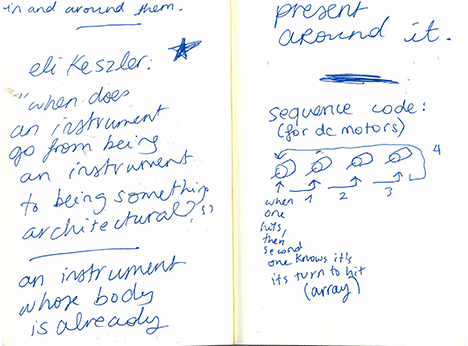 in and around them.
eli Keszler:
"when does
an instrument
go from being
an instrument
to being something
architectural?"
an instrument
whose body
is already
present
around it.
sequence code:
(for dc motors)
4
1 2 3
when
one
hits,
then
second
one knows it's
its turn to hit
(array)